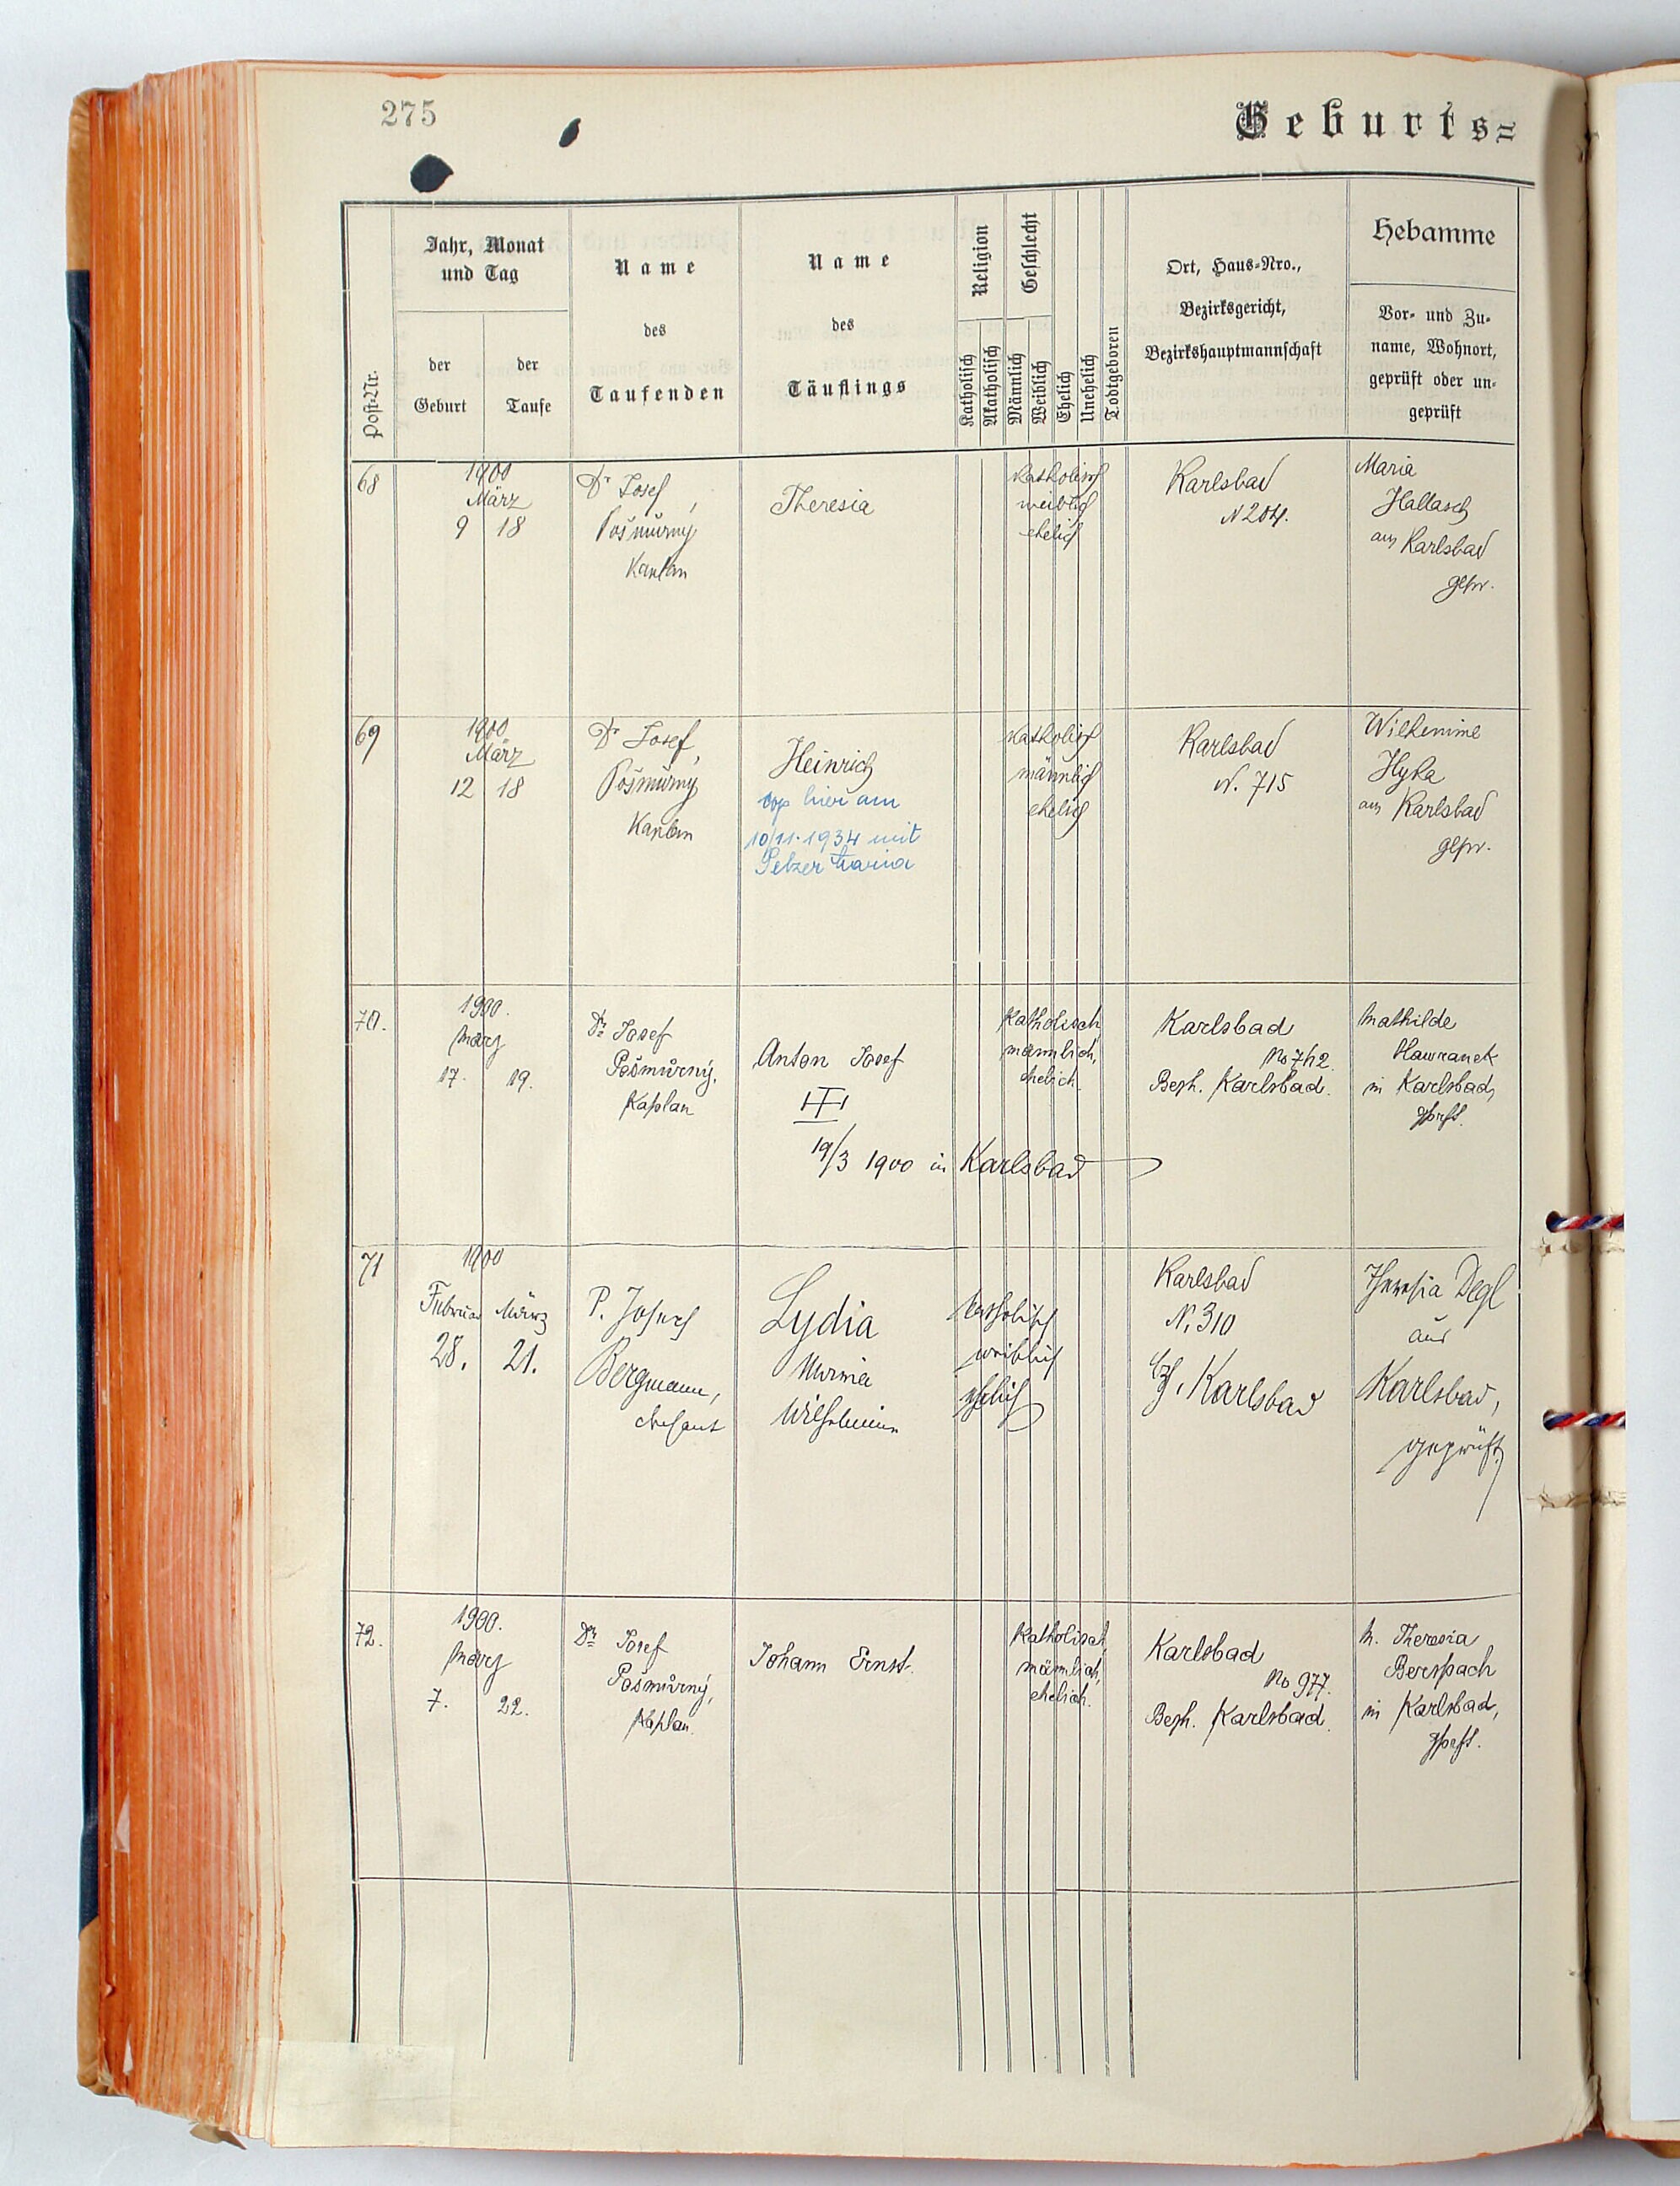 275
Geburts=
Post=Nr.
Jahr, Monat
und Tag
der
Geburt
der
Taufe
Name
des
Taufenden
Name
des
Täuflings
Religion
Katholisch
Akatholisch
Geschlecht
Männlich
Weiblich
Ehelich
Unehelich
Todtgeboren
Ort, Haus=Nro.,
Bezirksgericht,
Bezirkshauptmannschaft
Hebamme
Vor= und Zu=
name, Wohnort,
geprüft oder un=
geprüft
68
1900
März
9 18
Dr Josef
Pošmůrný
Kaplan
Theresia
katholisch
weiblich
ehelich
Karlsbad
N 204.
Maria
Hallasch
aus Karlsbad
gepr.
69
1900
März
12 18
Dr Josef
Pošmůrný
Kaplan
Heinrich
cop hier am
10/11. 1934 mit
Pelzer Maria
katholisch
männlich
ehelich
Karlsbad
N. 715
Wilhemine
Hyka
aus Karlsbad
gepr.
70.
1900.
März
17. 19.
Dr Josef
Pošmůrný,
Kaplan
Anton Josef
19/3 1900 in Karlsbad
Katholisch
männlich,
ehelich
Karlsbad
No 742.
Bezh. Karlsbad.
Mathilde
Hawranek
in Karlsbad,
gepft.
71
1900
Februar März
28. 21.
P. Josef
Bergmann,
Dechant
Lydia
Maria
Wilhelmine
katholisch
weiblich
ehelich
Karlsbad
N. 310
Karlsbad
Theresia Degl
aus
Karlsbad,
geprüft
72.
1900.
März
7. 22.
Dr Josef
Pošmůrný,
Kaplan.
Johann Ernst.
Katholisch
männlich,
ehelich.
Karlsbad
No 977.
Bezh. Karlsbad.
M. Theresia
Berspach
in Karlsbad,
gepft.